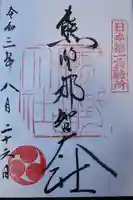 日本第一霊験所
熊野那智大社
令和三年
八月二十六日